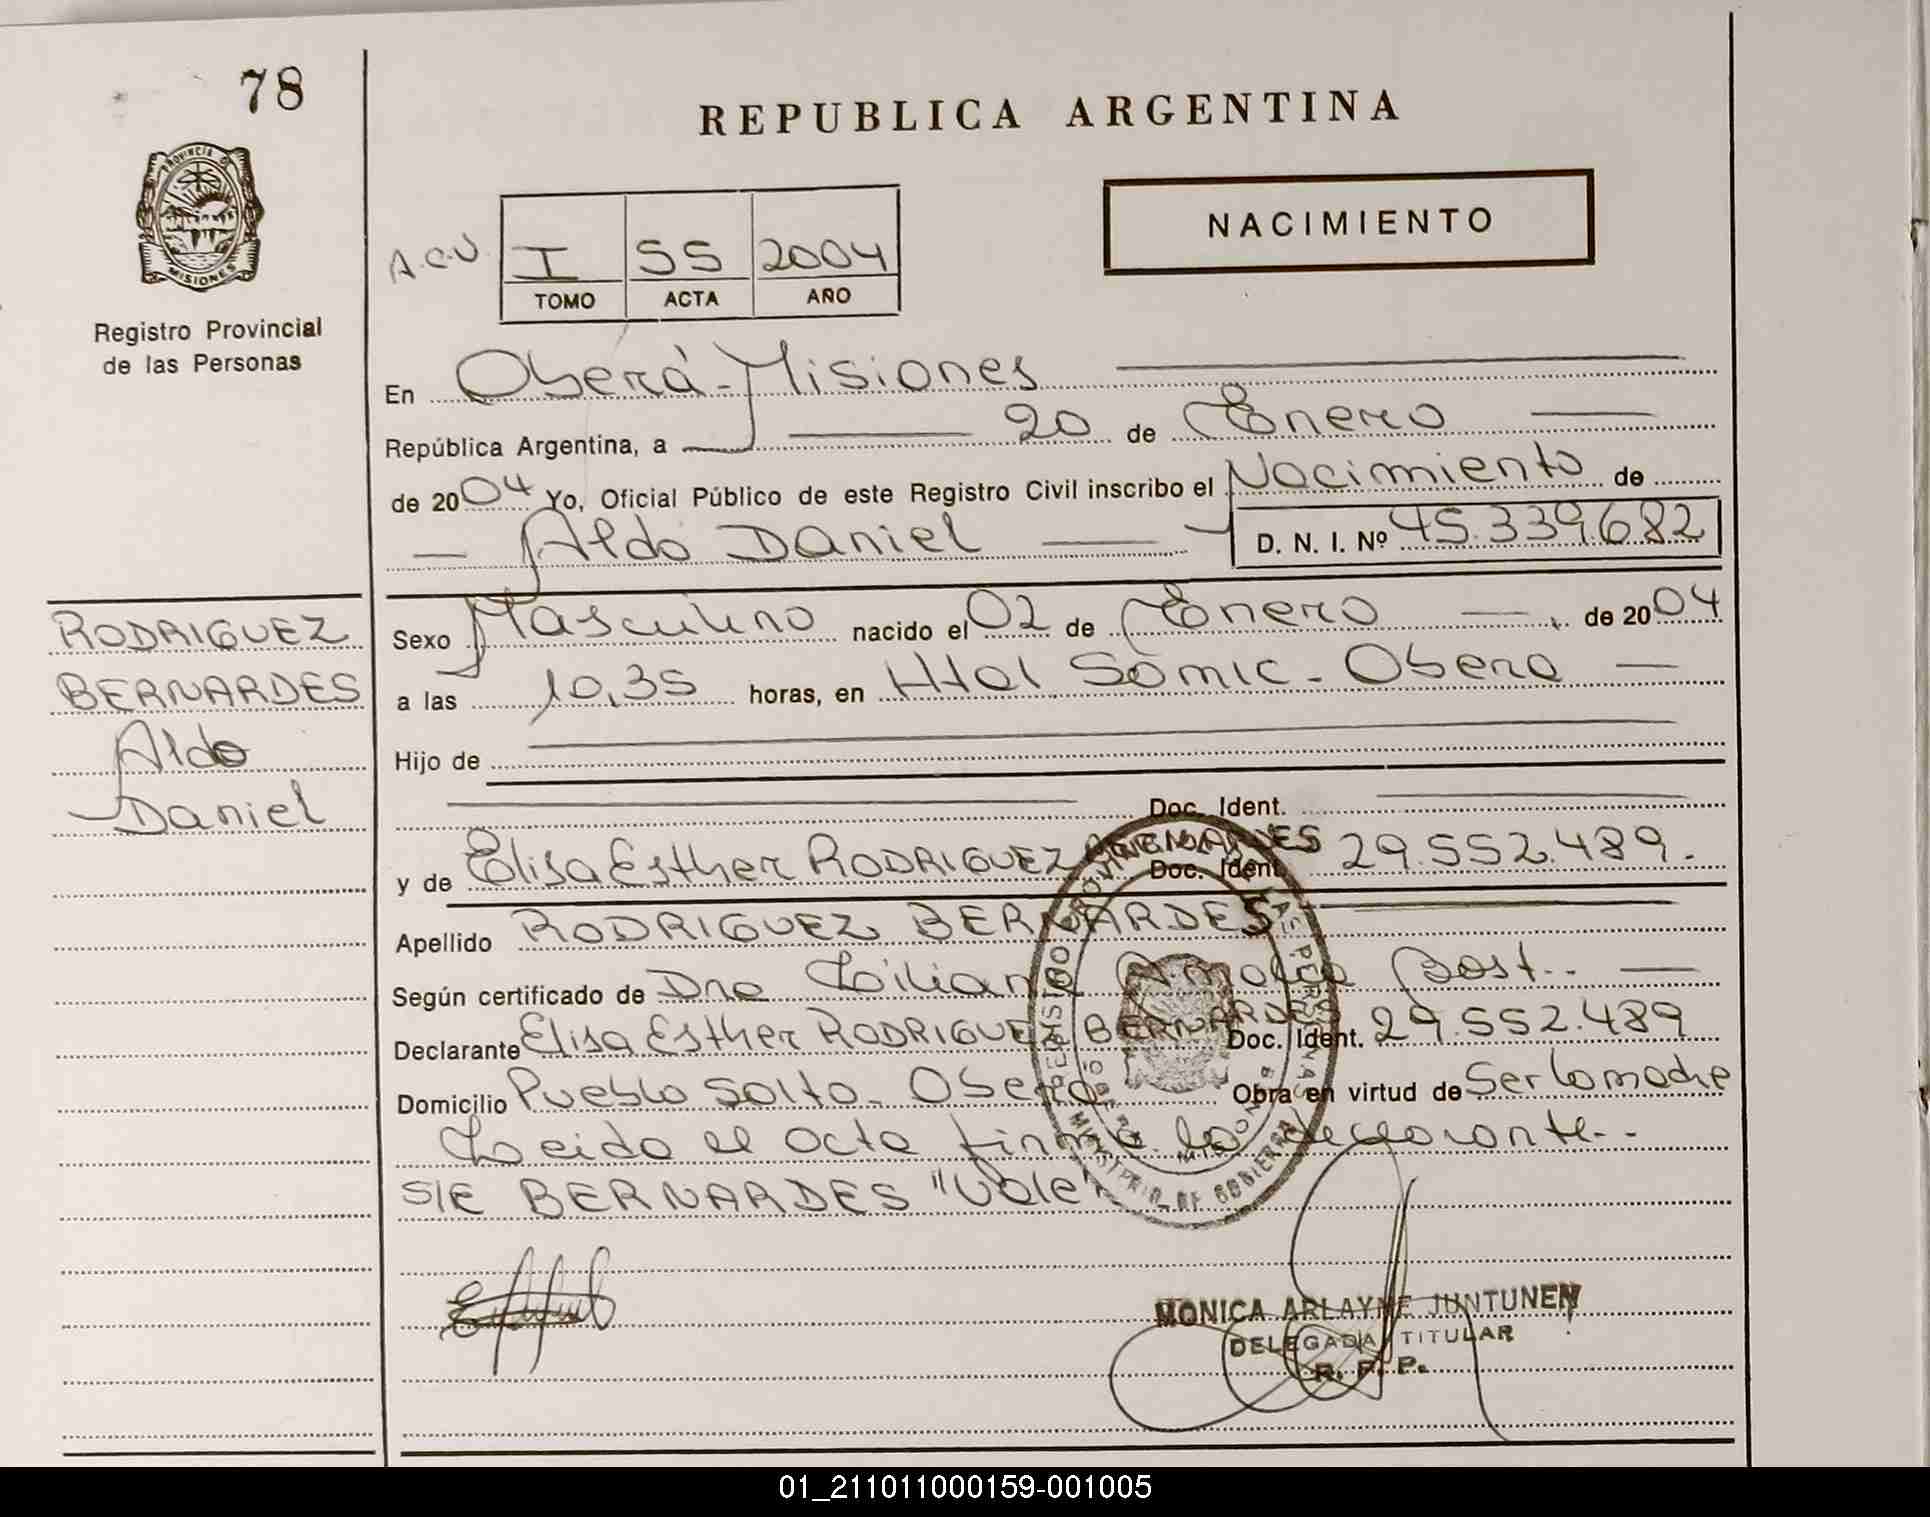 78
REPUBLICA ARGENTINA
PROVINCIA DE
MISIONES
Registro Provincial
de las Personas
NACIMIENTO
A.C.V. I 55 2004
TOMO ACTA AÑO
En Oberá - Misiones
República Argentina, a 20 de Enero
de 2004 Yo, Oficial Público de este Registro Civil inscribo el Nacimiento de
Aldo Daniel D. N. I. Nº 45.339.682
RODRIGUEZ
BERNARDES
Aldo
Daniel
Sexo Masculino nacido el 02 de Enero de 2004
a las 10,35 horas, en Htal Samic - Obera
Hijo de
Doc. Ident.
y de Elisa Esther RODRIGUEZ BERNARDES Doc. Ident. 29.552.489.
Apellido RODRIGUEZ BERNARDES
Según certificado de Dra Liliana Post..
Declarante Elisa Esther RODRIGUEZ BERNARDES Doc. Ident. 29.552.489
Domicilio Pueblo Salto - Obera Obra en virtud de Ser la madre
Leida el acta firma la declarante..
S/E BERNARDES "Vale"
MINISTERIO DE GOBIERNO
MONICA ARLAYNE JUNTUNEN
DELEGADA TITULAR
R. P. P.
01_211011000159-001005